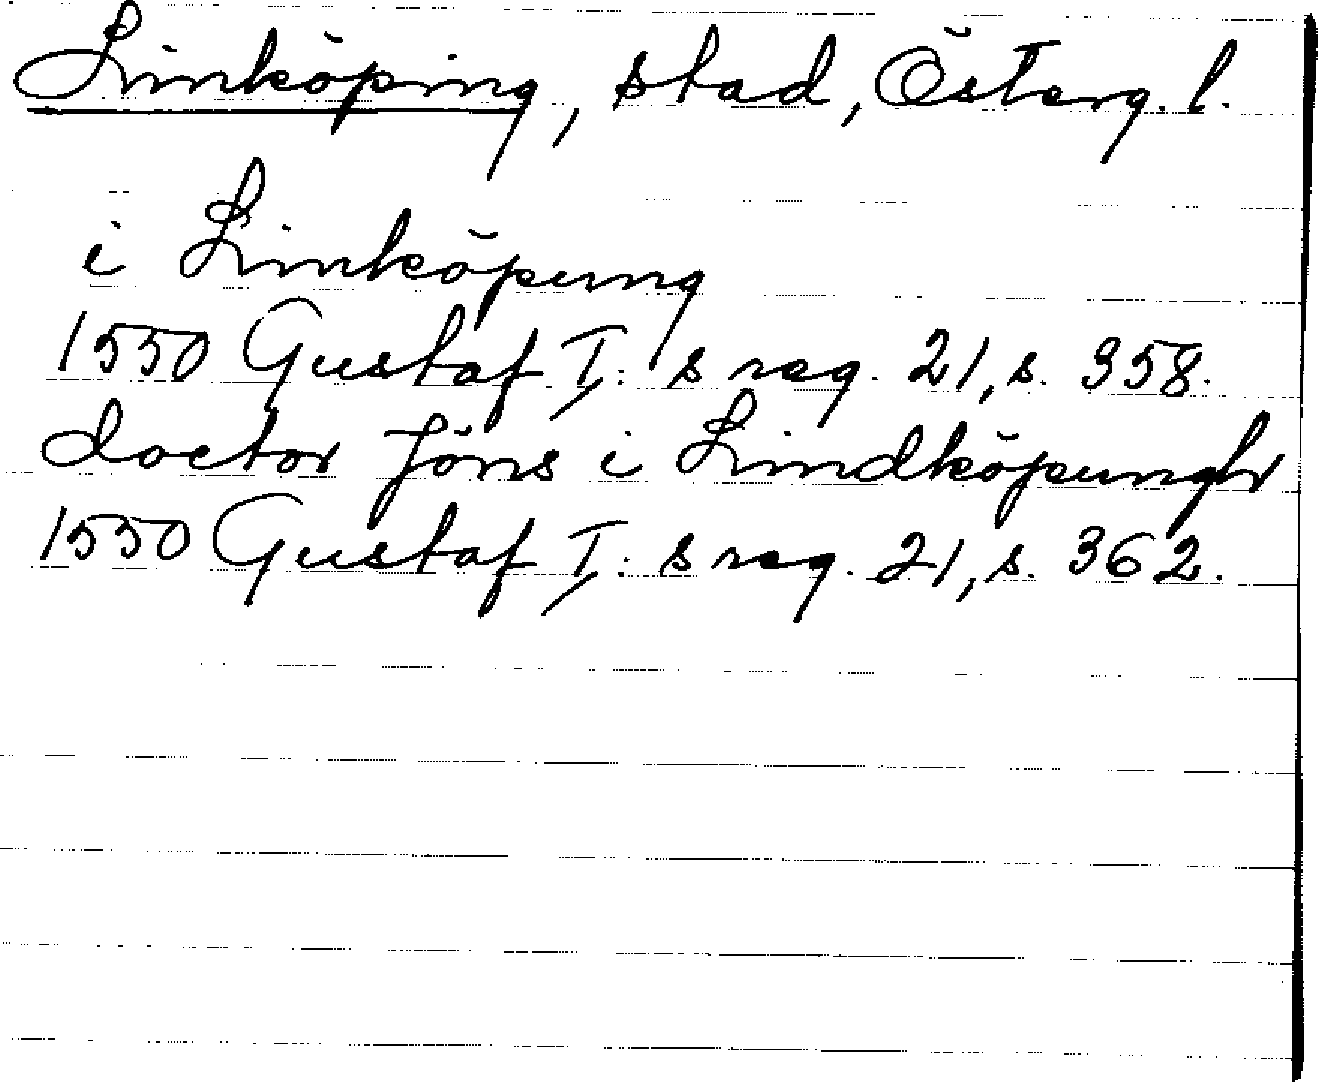 Linköping, stad, Österg. l.
i Linköpung
1550 Gustaf I: s reg. 21, s. 358.
doctor Jöns i Lindköpungh
1550 Gustaf I: s reg. 21, s. 362.